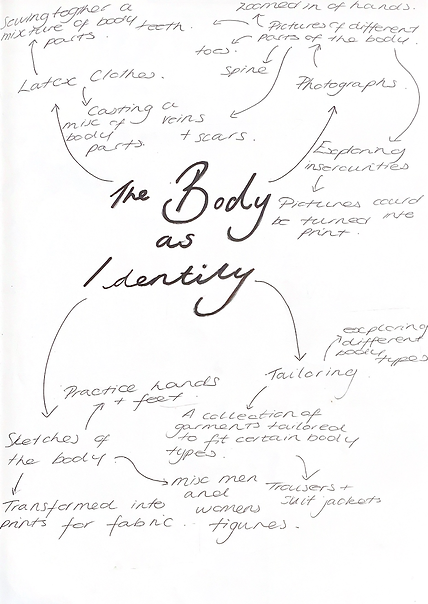 Sewing together a
mixture of body
parts.
teeth.
toes.
Spine
Zoomed in of hands.
Pictures of different
parts of the body.
Latex Clothes.
Casting a
mix of
body
parts.
veins
+ scars.
Photographs.
Exploring
insecurities
Pictures could
be turned into
print.
The Body
as
Identity
exploring
different
body
types
Tailoring
Practice hands
+ feet.
A collection of
garments tailored
to fit certain body
types.
Sketches of
the body.
mix men
and
womens
figures.
Trousers +
Suit jackets
Transformed into
prints for fabric.